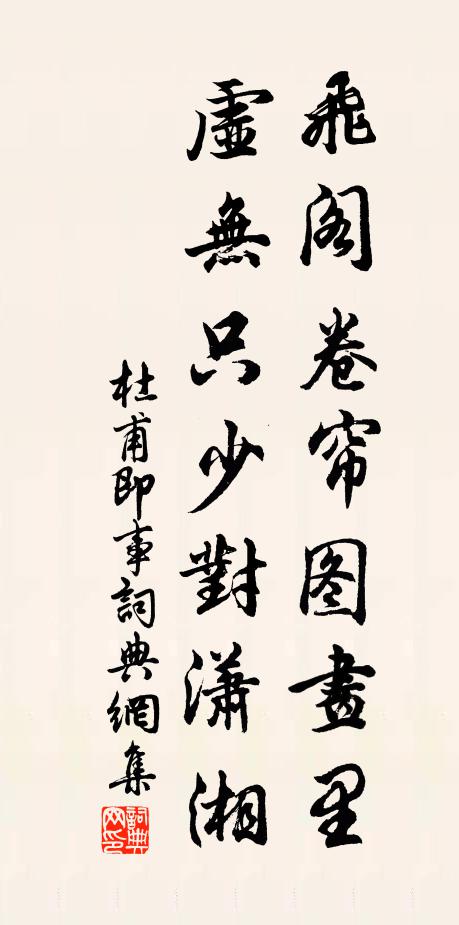 飛阁卷帘图畫里
虛無只少對瀟湘
杜甫即事詞典網集
詞典網印